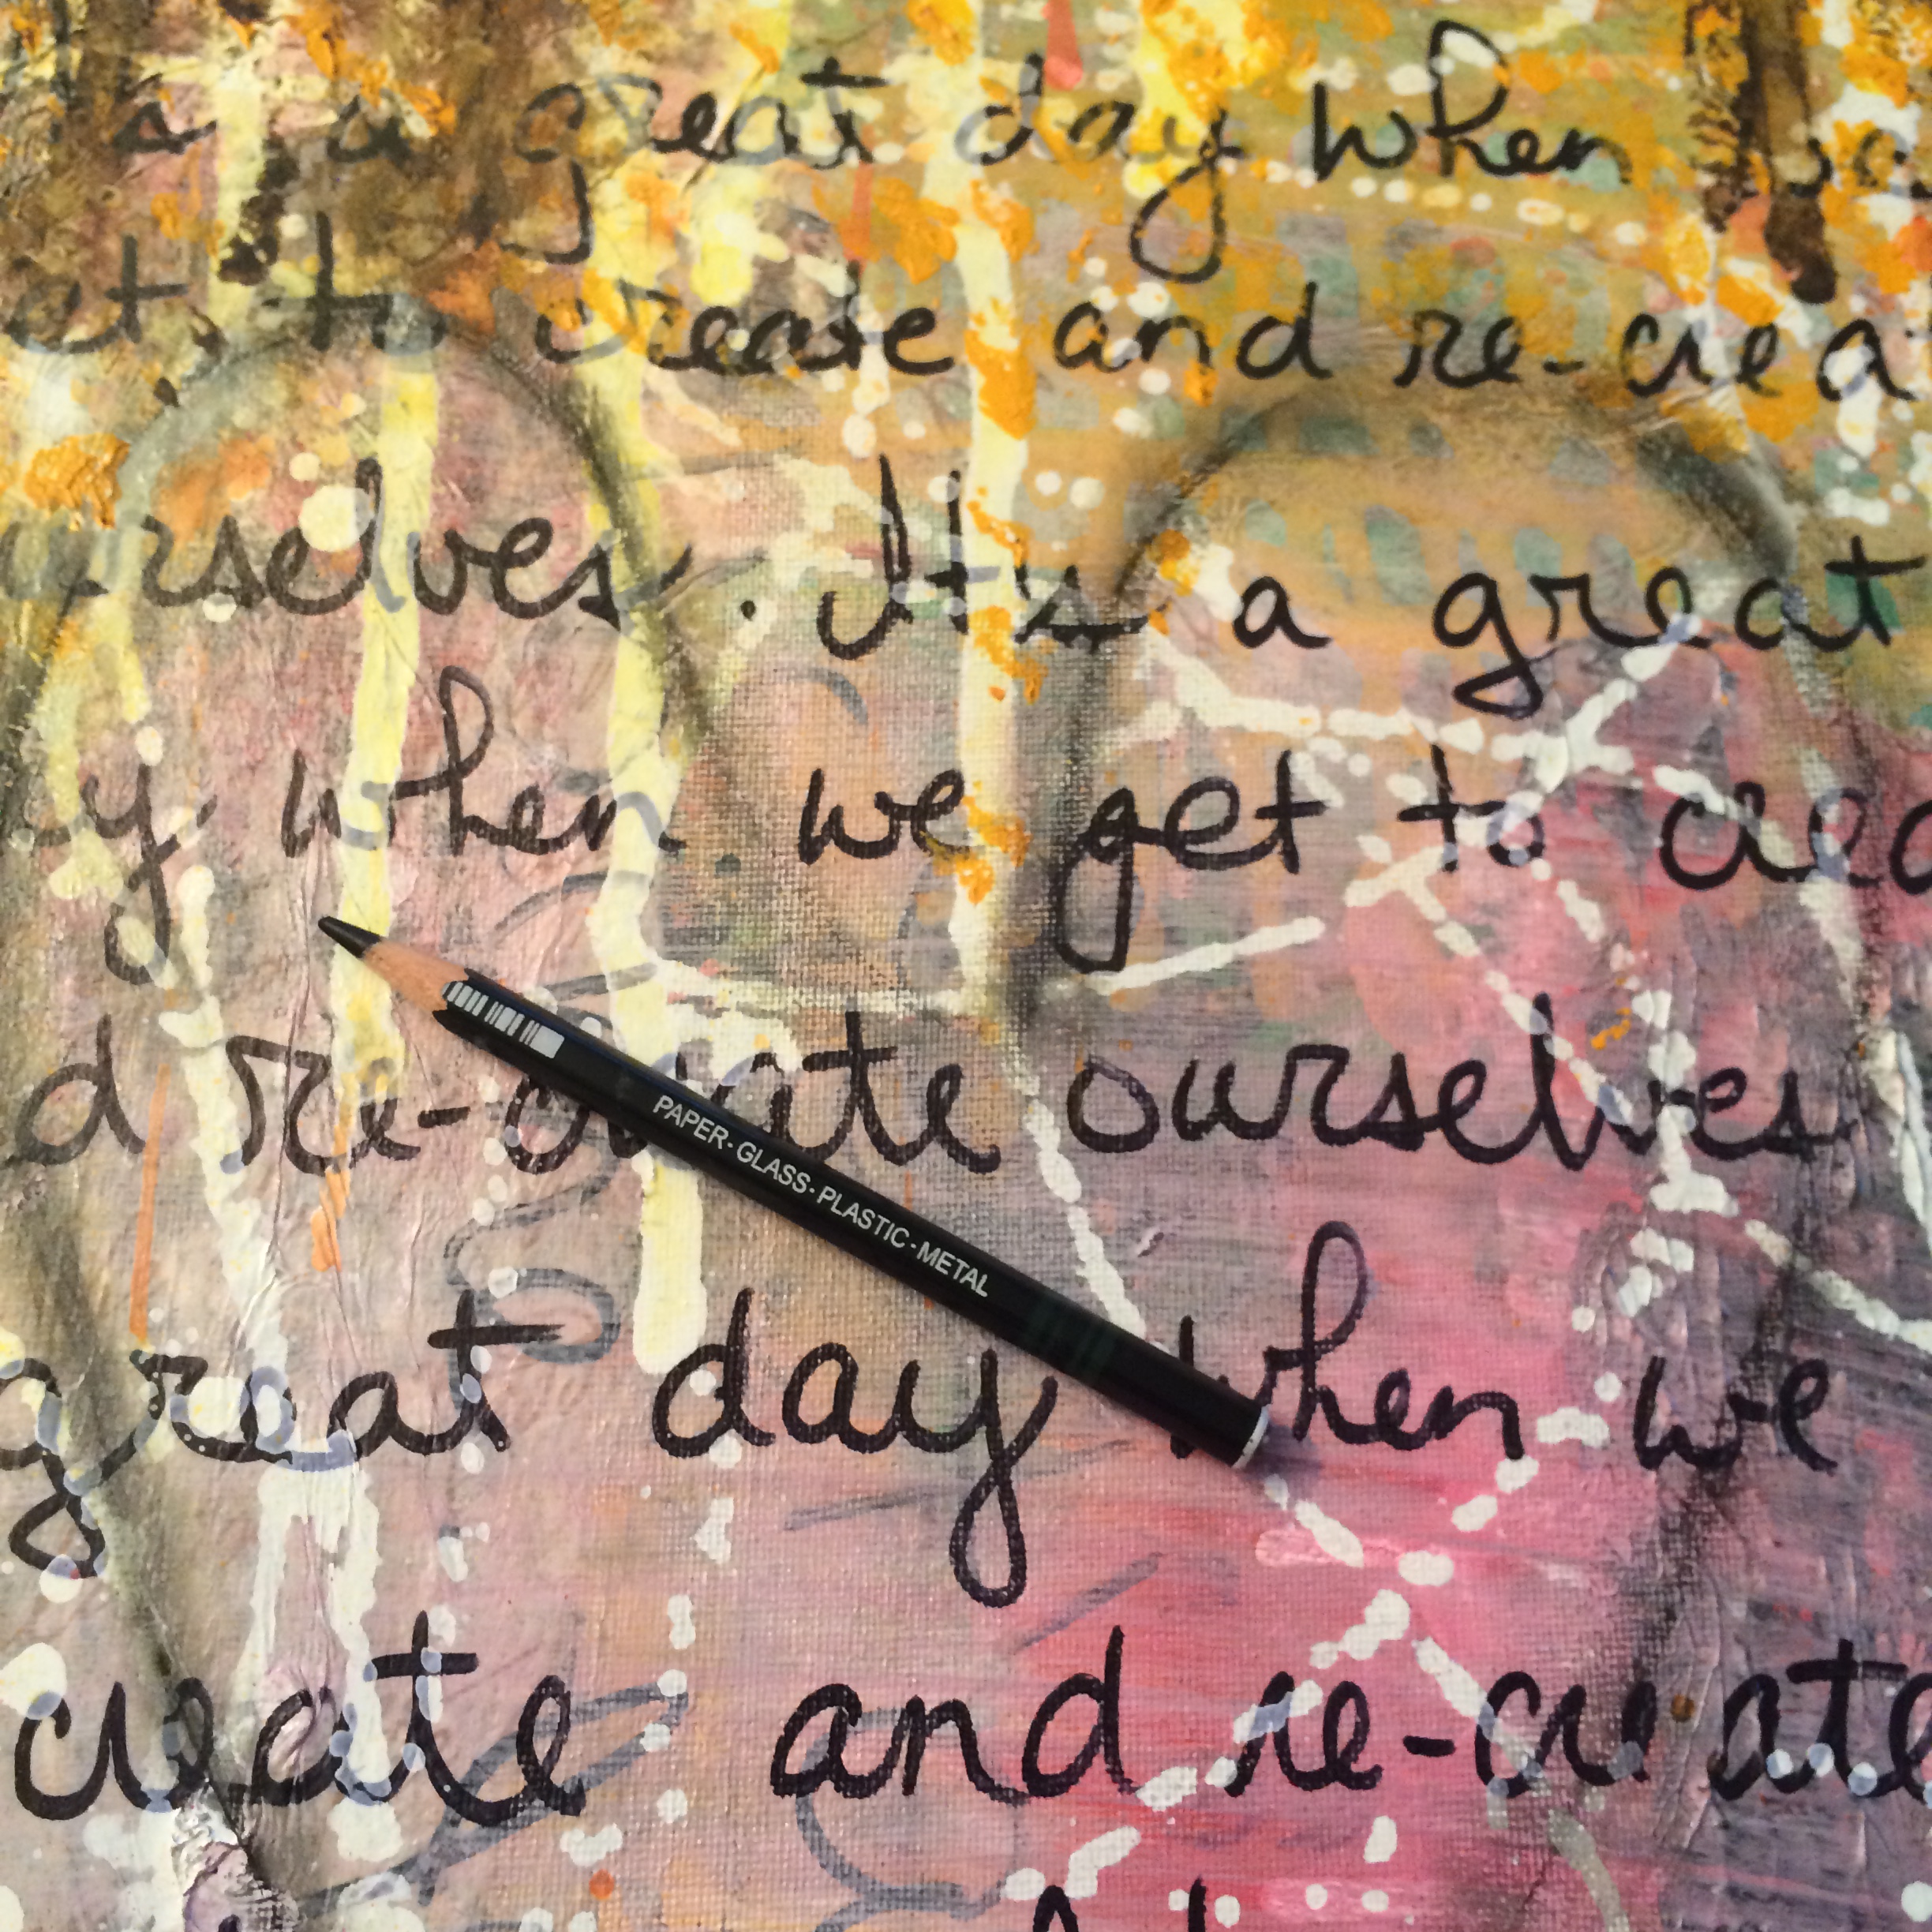 a great day when
to create and re-crea
urselves. It's a great
y when we get to crea
d re-create ourselves
great day when we
create and re-create
PAPER · GLASS · PLASTIC · METAL